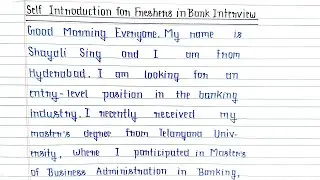 Self Introduction for Freshers in Bank Interview
Good Morning Everyone. My name is
Shayali Sing and I am from
Hyderabad. I am looking for an
entry-level position in the banking
industry. I recently received my
master's degree from Telangana Univ-
ersity, where I participated in Masters
of Business Administration in Banking,